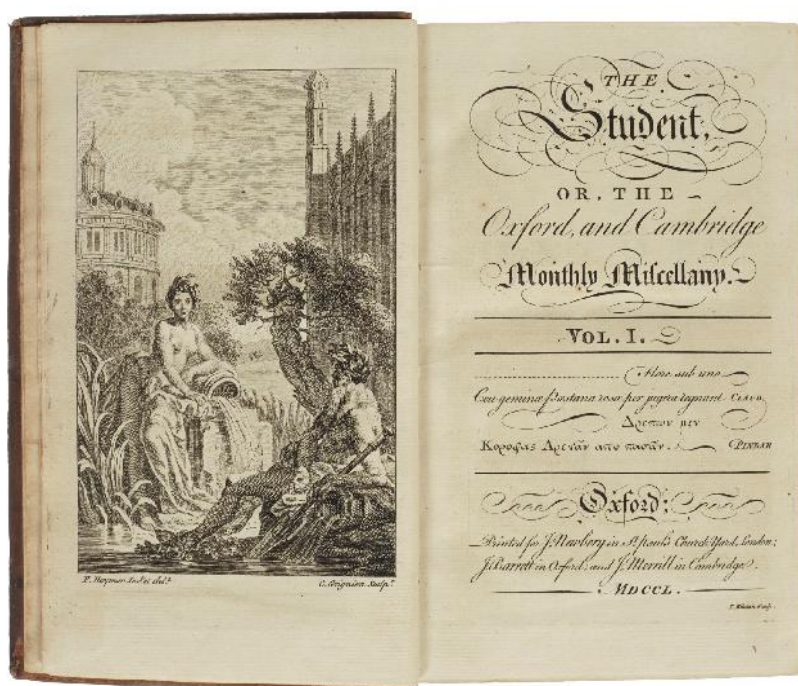 F. Hayman Inv.t et delin.t
C. Grignion Sculp.t
THE
Student,
OR, THE
Oxford, and Cambridge
Monthly Miſcellany.
VOL. I.
Flore sub uno
Ceu geminæ Pæstana rosæ per jugera regnant. CLAUD.
Δρεπων μεν
Κορυφας Αρετᾶν απο πασᾶν. PINDAR
Oxford:
Printed for J. Newbery in St. Paul's Church Yard, London;
J. Barrett in Oxford; and J. Merrill in Cambridge.
MDCCL.